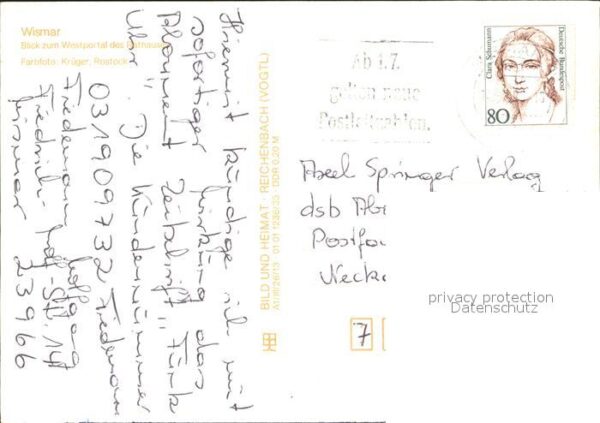 Wismar
Blick zum Westportal des Rathauses
Farbfoto: Krüger, Rostock
Hiermit kündige ich mit
sofortiger Wirkung das
Abonnement Zeitschrift "Funk
Uhr". Die Kundennummer
031909732 Friedemann
Friedemann Wolfgang
Friedrich- -Str. 14
Wismar 23966
BILD UND HEIMAT · REICHENBACH (VOGTL)
A1/III/26/13 01 01 1236/33 · DDR 0,20 M
Ab 1.7.
gelten neue
Postleitzahlen.
Clara Schumann
Deutsche Bundespost
80
Axel Springer Verlag
dsb Ab
Postfa
Necka
7
privacy protection
Datenschutz